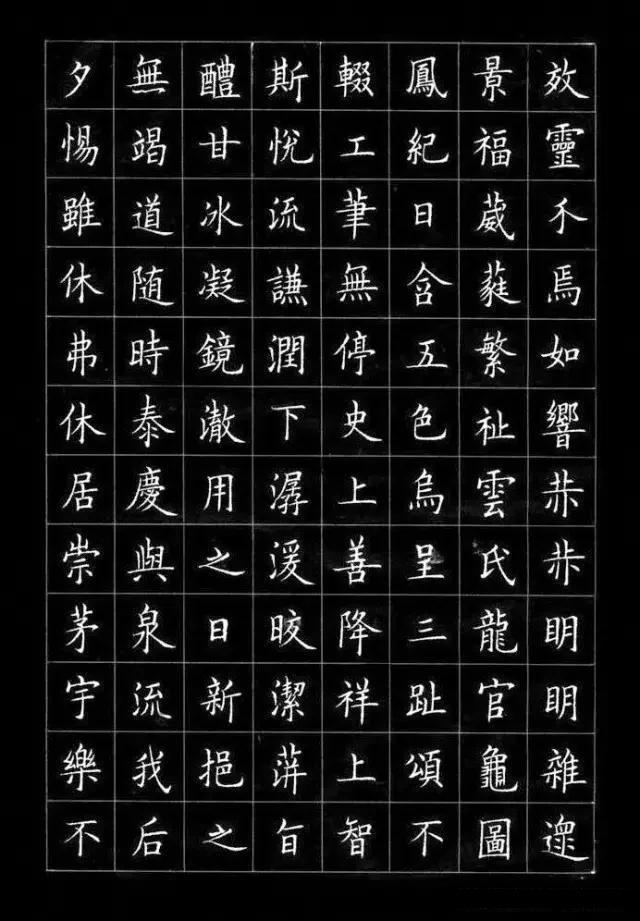 效靈介焉如響赫赫明明雜遝
景福葳蕤繁祉雲氏龍官龜圖
鳳紀日含五色烏呈三趾頌不
輟工筆無停史上善降祥上智
斯悅流謙潤下潺湲晈潔萍旨
醴甘冰凝鏡澈用之日新挹之
無竭道随時泰慶與泉流我后
夕惕雖休弗休居崇茅宇樂不